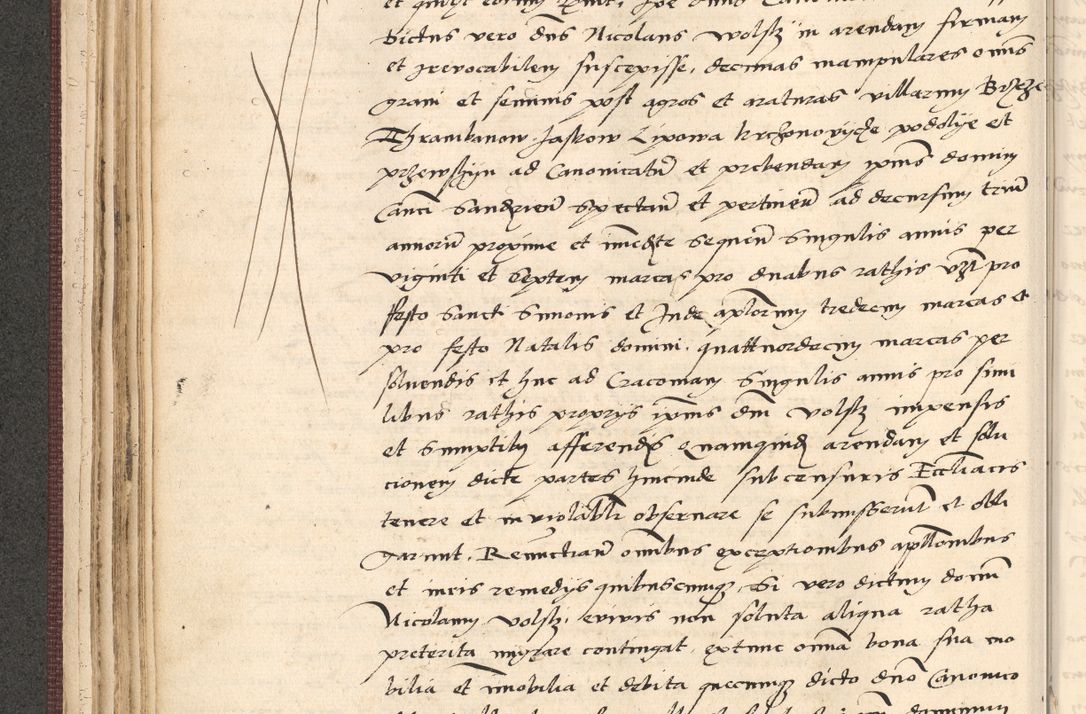 dictus vero dns Nicolaus Wolsky in arendam firmam
et irevocabilem suscepisse, decimas manipulares omis
grani et seminis post agros et araturas villarum
Thrambanow Jaskow Lipowa Krchonovycze podolye et
przewszyn ad Canonicatu et prebendam ipius domini
Canci Sandzien spectan et pertinen ad decursum trium
annoru proxime et imediate sequen singulis annis per
viginti et septem marcas pro duabus rathis pro
festo Sancti Simonis et Jude aplorum tredecim marcas et
pro festo Natalis domini quattuordecim marcas per
soluendis et huc ad Cracoviam singulis annis pro simi
libus rathis propriis ipius dni Wolsky impensis
et sumptibus afferendis Quamquidem arendam et solu
cionem dicte partes hincinde sub censuris Eccliacis
tenere et inviolabli observare se submisserut et obli
garunt, Renuctian omibus exceptionibus apellonibus
et iuris remediis quibuscumque, Si vero dictum dominu
Nicolaum Wolsky, e vivis non soluta aliqua ratha
preterita migrare contingat, extunc omia bona sua mo
bilia et imobilia et debita quecumque dicto dno Canonico